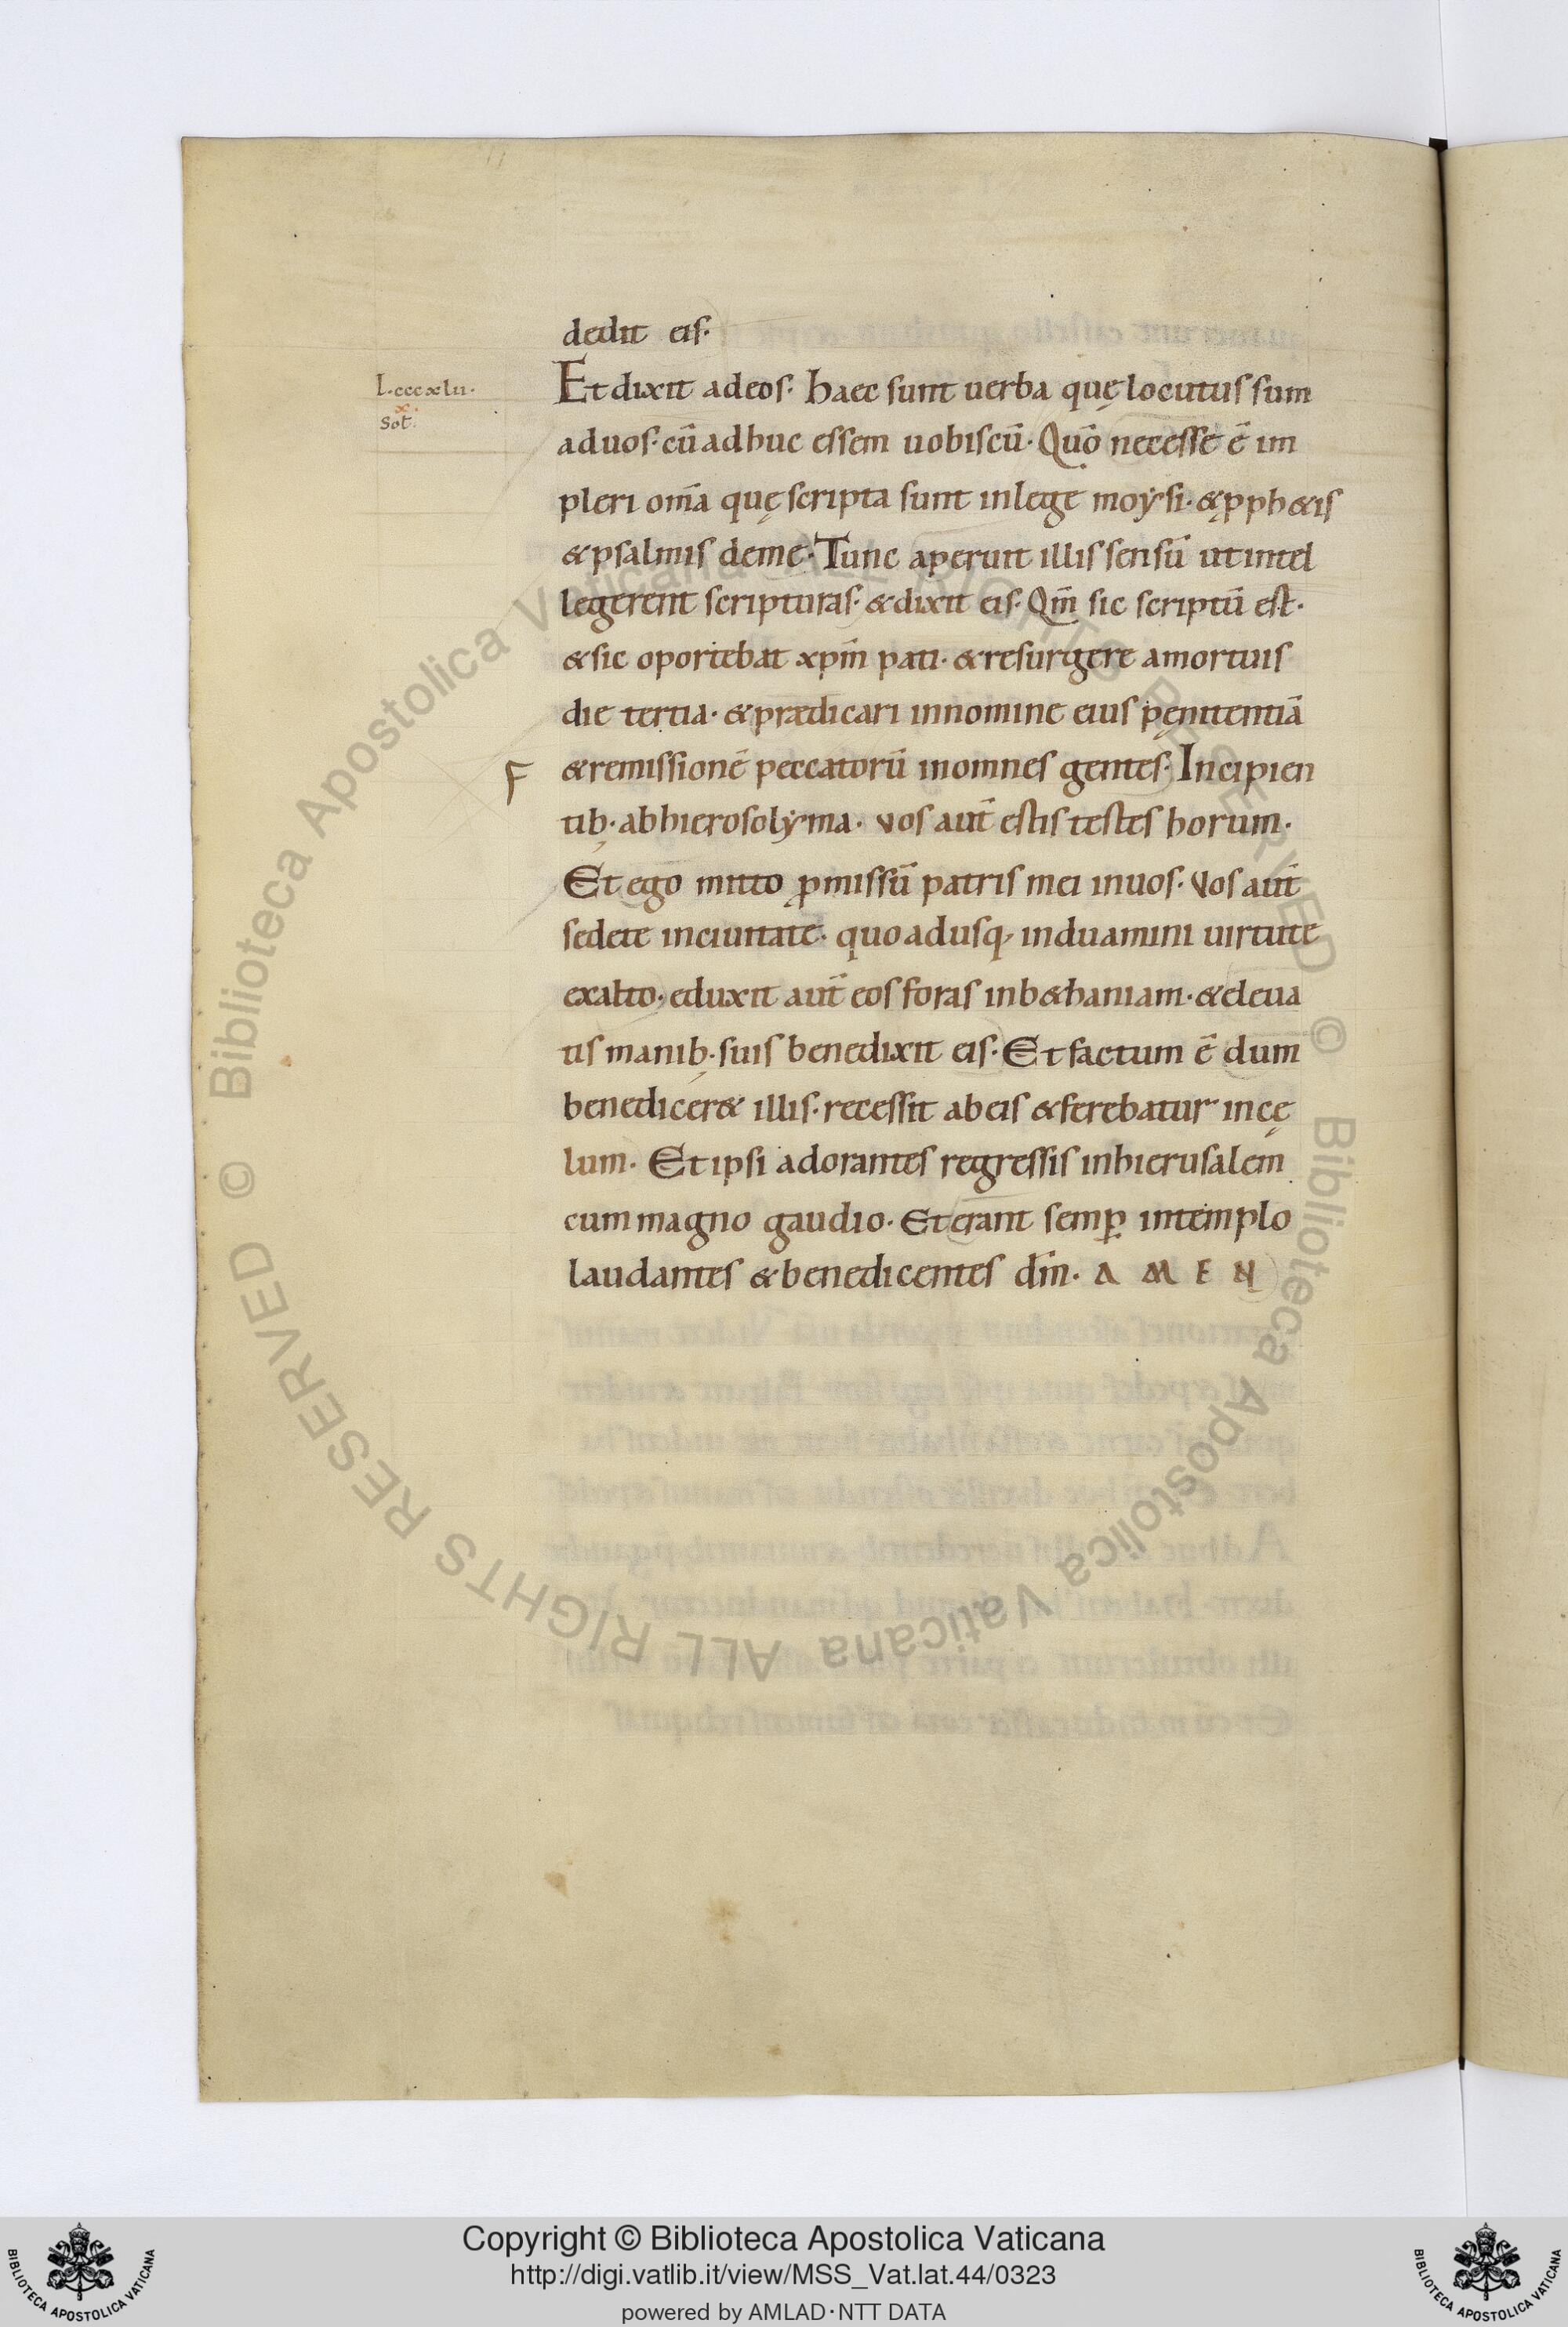 dedit eis.
L. cccxlii.
x.
Sol.
Et dixit adeos. haec sunt uerba quę locutus sum
aduos. cū adhuc essem uobiscū. Quō necesse ē im
pleri om̄a quę scripta sunt inlege moẏsi. & ꝓph&is
& psalmis deme. Tunc aperuit illis sensū ut intel
legerent scripturas. & dixit eis. Qm̄ sic scriptū est.
& sic oportebat xpm̄ pati. & resurgere amortuis
die tertia. & prædicari innomine eius pęnitentiā
F
& remissionē peccatorū inomnes gentes. Incipien
tib; abhierosolẏma. vos aut̄ estis testes horum.
Et ego mitto ꝓmissū patris mei inuos. Vos aut̄
sedete inciuitate. quo adusq; induamini uirtute
exalto. eduxit aut̄ eos foras inb&haniam. & eleua
tis manib; suis benedixit eis. Et factum ē dum
benedicer& illis. recessit abeis & ferebatur incę
lum. Et ipsi adorantes regressis inhierusalem
cum magno gaudio. Et erant semꝑ intemplo
laudantes & benedicentes dm̄. A M E N
© Biblioteca Apostolica Vaticana ALL RIGHTS RESERVED © Biblioteca Apostolica Vaticana ALL RIGHTS RESERVED
Copyright © Biblioteca Apostolica Vaticana
http://digi.vatlib.it/view/MSS_Vat.lat.44/0323
powered by AMLAD·NTT DATA
BIBLIOTECA APOSTOLICA VATICANA
BIBLIOTECA APOSTOLICA VATICANA